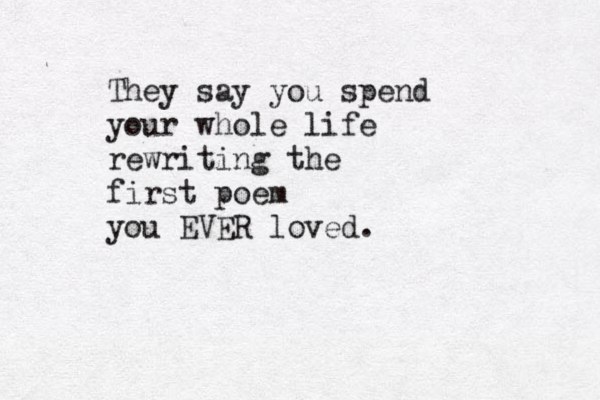 They say you spend
your whole life
rewriting the
first poem
you EVER loved.